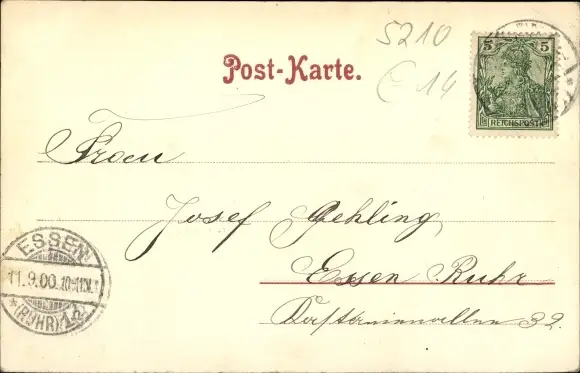 5210
€ 14
Post-Karte.
5 5
REICHSPOST
Frau
Josef Gehling
Essen Ruhr
32.
ESSEN
11.9.00.10-11V.
*(RUHR)1d